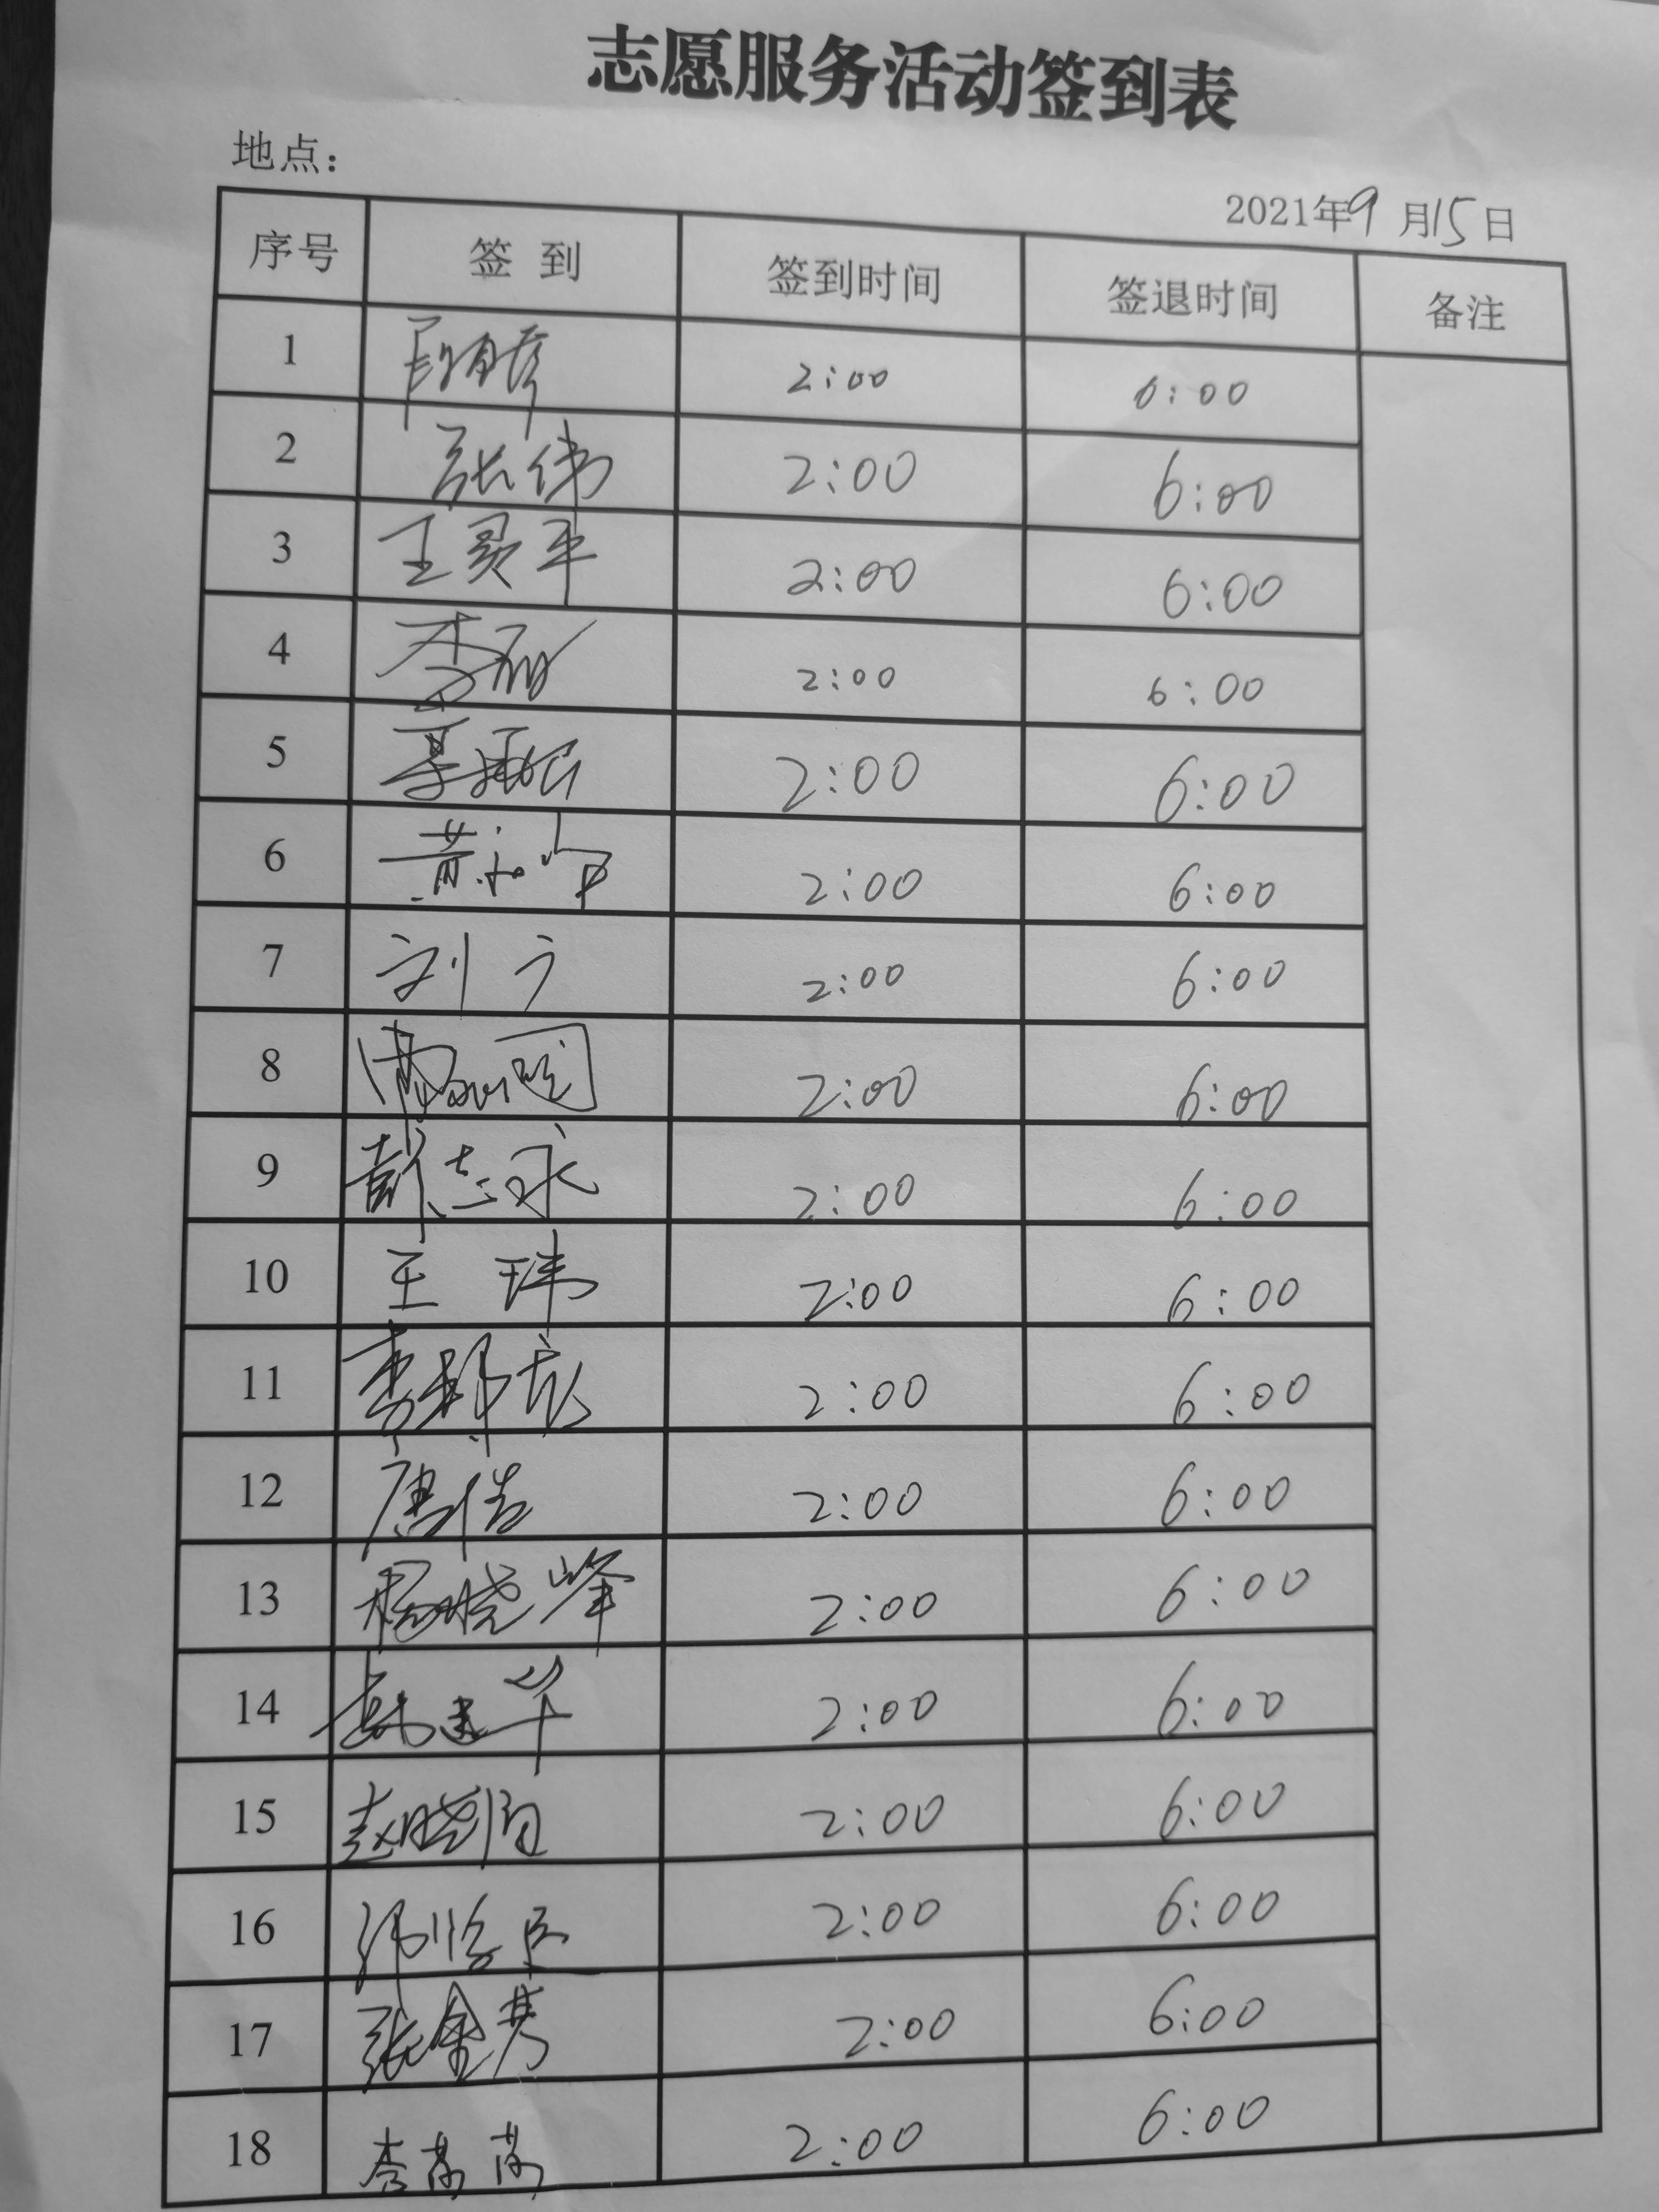 志愿服务活动签到表
地点：
2021年9月15日
序号 签到 签到时间 签退时间 备注
1 2:00 6:00
2 张伟 2:00 6:00
3 王灵平 2:00 6:00
4 李 2:00 6:00
5 2:00 6:00
6 黄 2:00 6:00
7 刘广 2:00 6:00
8 2:00 6:00
9 彭志永 2:00 6:00
10 王玮 2:00 6:00
11 李邦龙 2:00 6:00
12 唐倩 2:00 6:00
13 杨晓峰 2:00 6:00
14 韩建华 2:00 6:00
15 赵晓阳 2:00 6:00
16 2:00 6:00
17 张金秀 2:00 6:00
18 李芳芳 2:00 6:00